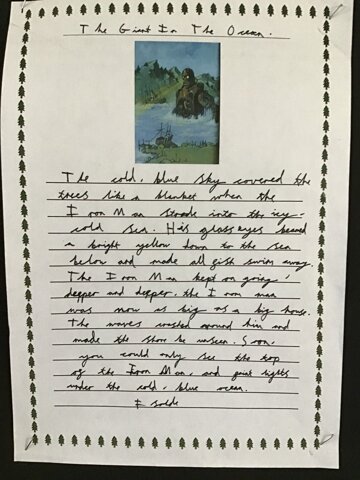 The Giant In The Ocean.
The cold, blue sky covered the
trees like a blanket when the
Iron Man strode into the icy-
cold sea. His glass eyes beamed
a bright yellow down to the sea
below and made all fish swim away.
The Iron Man kept on going,
deeper and deeper, the Iron man
was now as big as a big house.
The waves around him and
made the shore be unseen. Soon,
you could only see the top
of the Iron Man, and lights
under the cold, blue ocean.